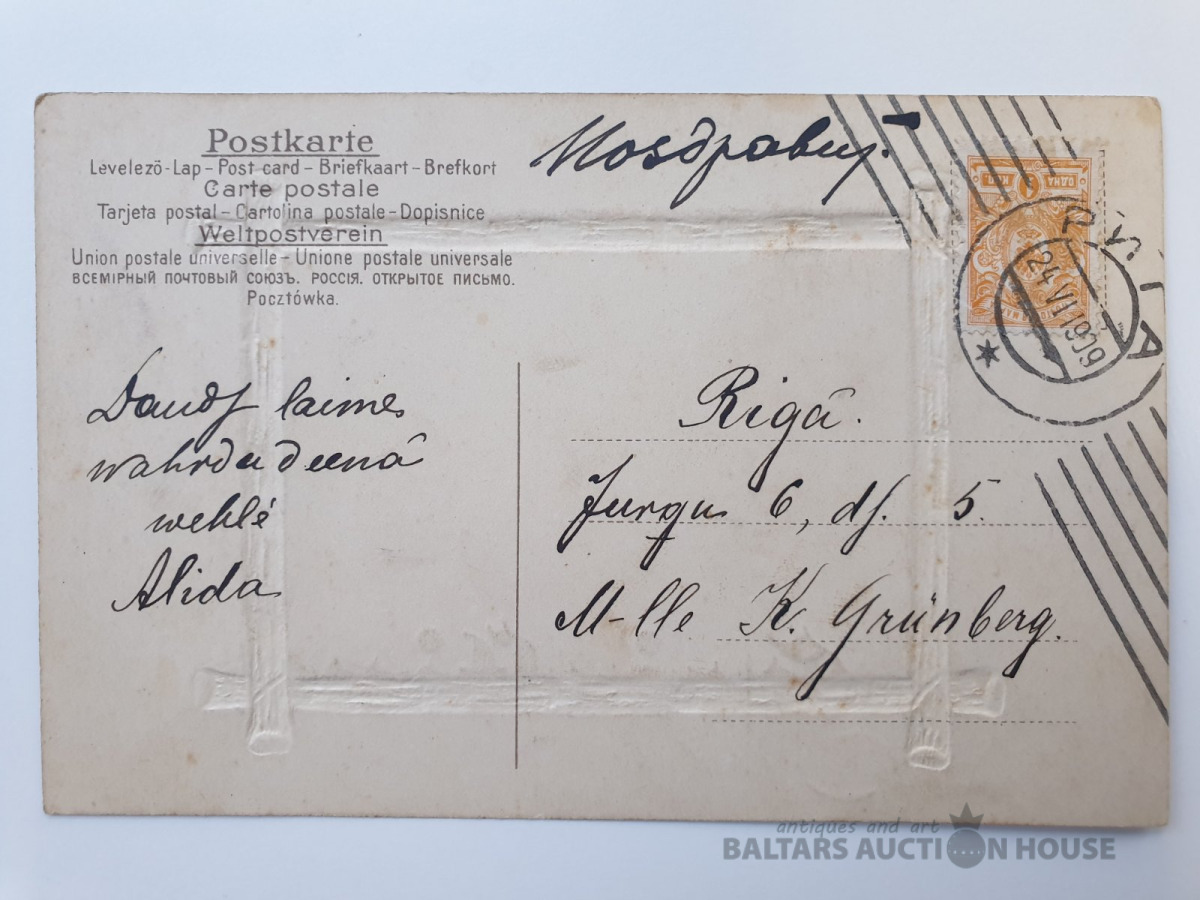 Postkarte
Levelező-Lap – Post card – Briefkaart – Brefkort
Carte postale
Tarjeta postal – Cartolina postale – Dopisnice
Weltpostverein
Union postale universelle – Unione postale universale
ВСЕМІРНЫЙ ПОЧТОВЫЙ СОЮЗЪ. РОССІЯ. ОТКРЫТОЕ ПИСЬМО.
Pocztówka.
ОДНА КОП
РИГА
24 VI 1909
Daudf laimes
wahrdu deenâ
wehlê
Alida
Rigâ.
Jurgu 6, df. 5.
M-lle K. Grünberg.
antiques and art
BALTARS AUCTION HOUSE